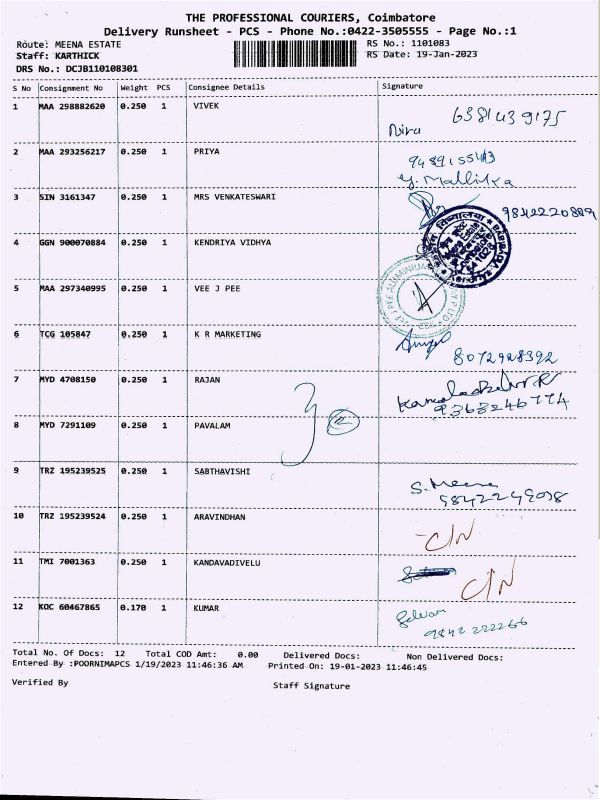 THE PROFESSIONAL COURIERS, Coimbatore
Delivery Runsheet - PCS - Phone No.:0422-3505555 - Page No.:1
Route: MEENA ESTATE
RS No.: 1101083
Staff: KARTHICK
RS Date: 19-Jan-2023
DRS No.: DCJB110108301
S No Consignment No Weight PCS Consignee Details Signature
1 MAA 298882620 0.250 1 VIVEK
6381439175
2 MAA 293256217 0.250 1 PRIYA
Y. Mallika
3 SIN 3161347 0.250 1 MRS VENKATESWARI
9842220889
4 GGN 900070884 0.250 1 KENDRIYA VIDHYA
5 MAA 297340995 0.250 1 VEE J PEE
6 TCG 105847 0.250 1 K R MARKETING
8072928392
7 MYD 4708150 0.250 1 RAJAN
9363246774
8 MYD 7291109 0.250 1 PAVALAM
9 TRZ 195239525 0.250 1 SABTHAVISHI
S. Meena
10 TRZ 195239524 0.250 1 ARAVINDHAN
C/N
11 TMI 7001363 0.250 1 KANDAVADIVELU
C/N
12 KOC 60467865 0.170 1 KUMAR
Selvan
9842 222266
Total No. Of Docs: 12 Total COD Amt: 0.00 Delivered Docs: Non Delivered Docs:
Entered By :POORNIMAPCS 1/19/2023 11:46:36 AM Printed On: 19-01-2023 11:46:45
Verified By Staff Signature